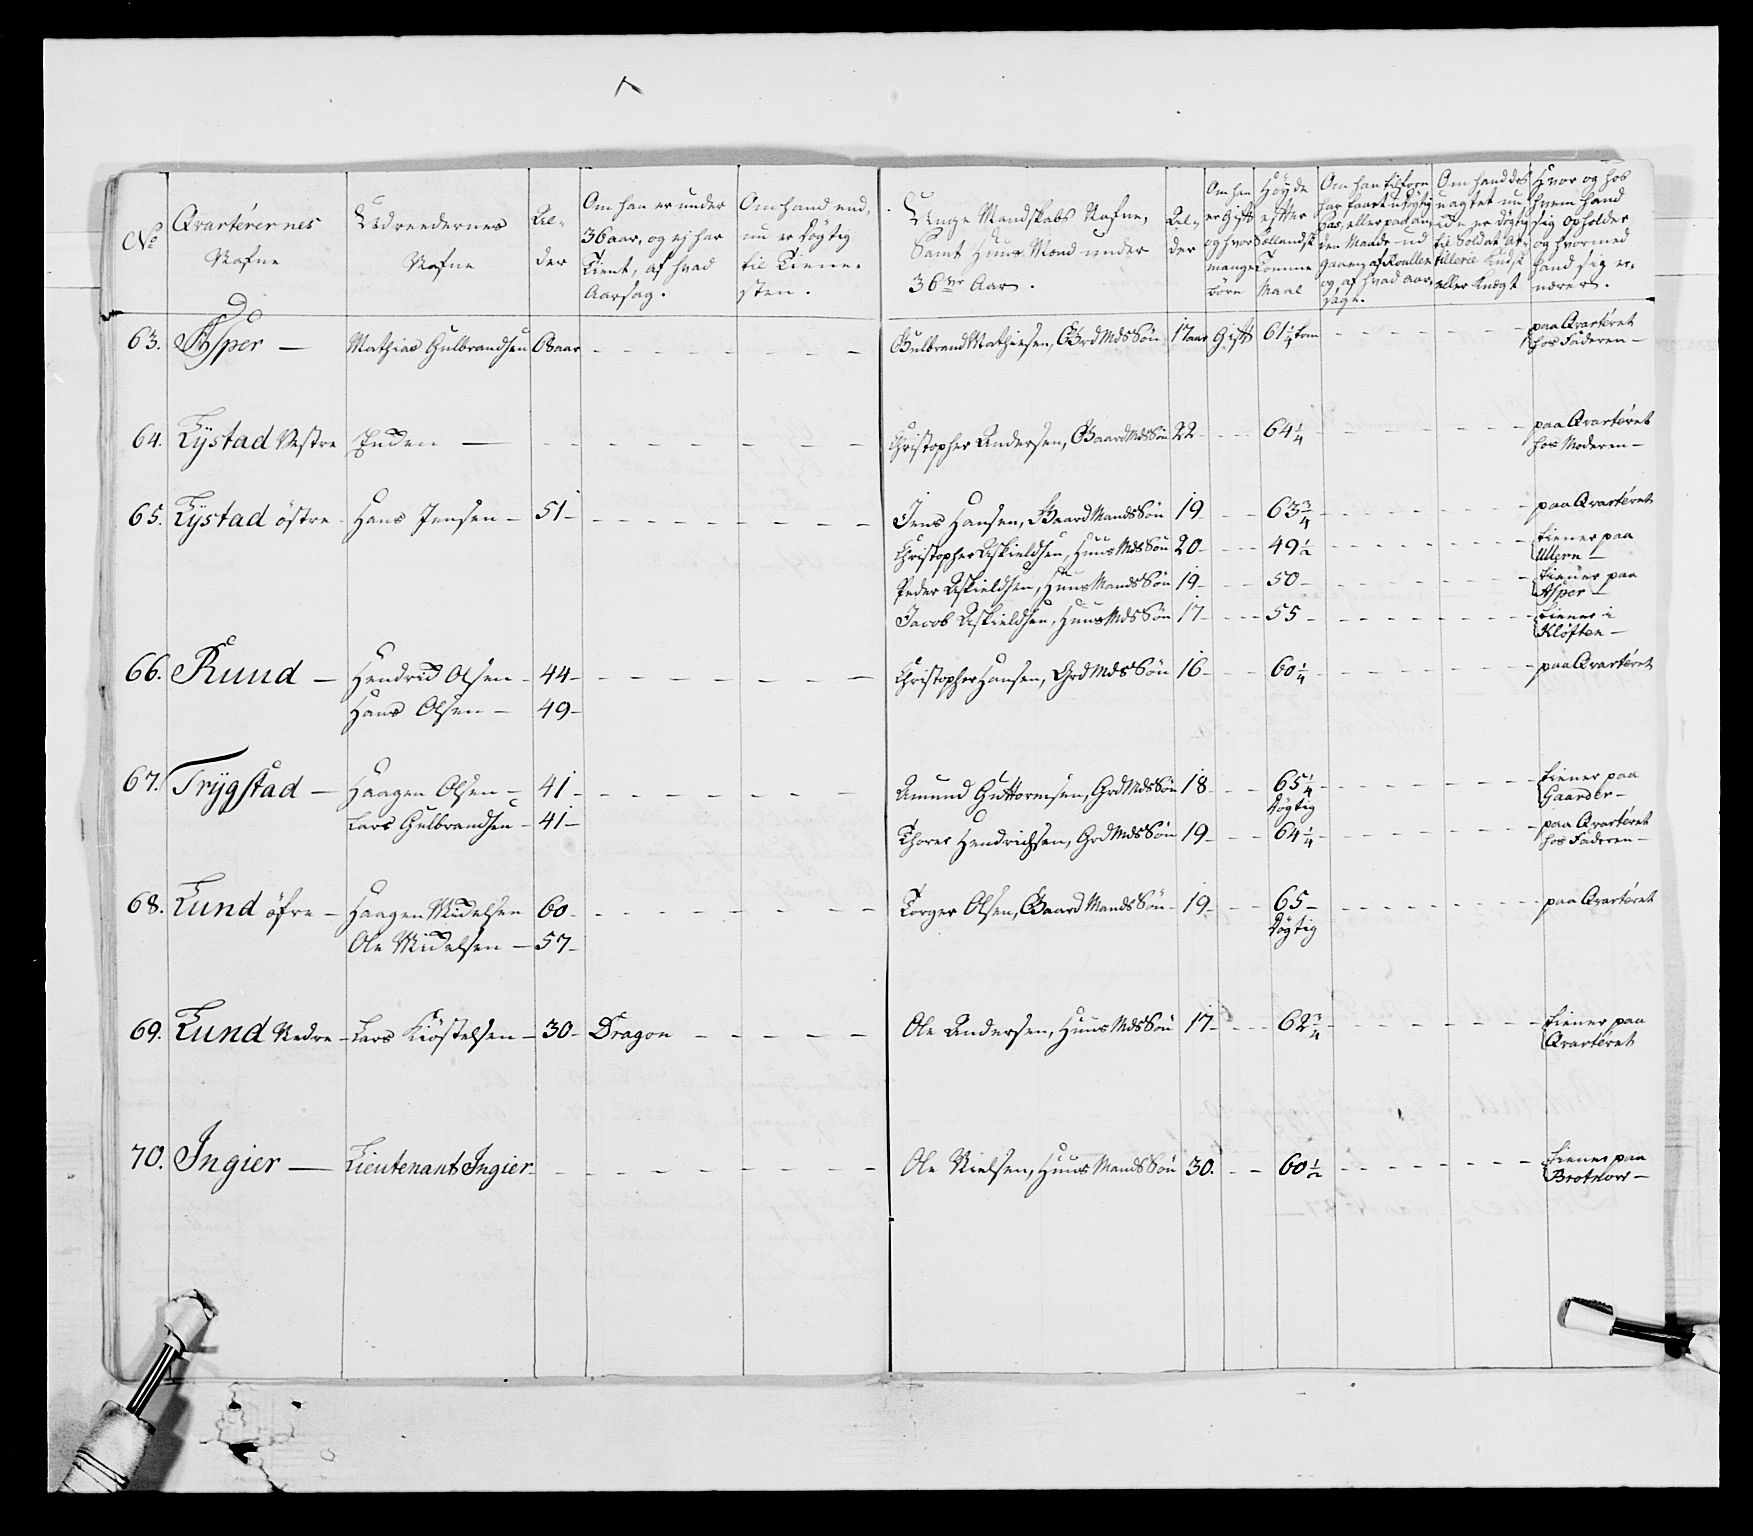 No
Qvarterernes
Nafne
Udreedernes
Nafne
Al-
der
Om han er under
36 aar, og ej har
tient, af hvad
Aarsag.
Om hand end-
nu er døgtig
til Tiene-
sten.
Unge Mandskabs Nafne,
Samt Huus Mænd under
36 Aar.
Al-
der
Om han
er gift
og hvor
mange
børn
Høyde
efter
Sællandsk
Tomme
Maal
Om han tilforn
har faaet udygtig
Pas, eller paa an-
den Maade ud-
gaaen af Roullen
og af hvad aar-
sag.
Om hand des
uagtet nu
er døgtig
til Soldat Ar-
tillerie Kudsk
eller Knægt
Hvor og hos
hvem hand
sig opholder
og hvormed
hand sig er-
nærer.
63. Asper — Mathias Gulbrandsen 68 aar Gulbrand Mathiesen, Grd Mds Søn 17 aar Gift 61 1/4 tom paa Qvarteret
hos Faderen —
64. Lÿstad Vestre Enden — Christopher Andersen, Gaard Mds Søn 22 64 1/4 paa Qvarteret
hos Moderen —
65. Lÿstad östre Hans Jensen — 51 Jens Hansen, Gaard Mands Søn 19 63 3/4 paa Qvarteret
Christopher Askieldsen, Huus Mds Søn 20 49 1/2 tiener paa
Ullern —
Peder Askieldsen, Huus Mands Søn 19 50 tiener paa
Asper —
Jacob Askieldsen, Huus Mds Søn 17 55 tiener i
Kløften —
66. Ruud — Hendrich Olsen 44 Christopher Hansen, Grd Mds Søn 16 60 1/4 paa Qvarteret
Hans Olsen — 49
67. Trÿgstad — Haagen Olsen — 41 Amund Guttormsen, Grd Mds Søn 18 65 1/4 tiener paa
døgtig Gaarder —
Lars Gulbrandsen — 41 Thorer Hendrichsen, Grd Mds Søn 19 64 1/4 paa Qvarteret
hos Faderen —
68. Lund öfre — Haagen Michelsen 60 Torger Olsen, Gaard Mands Søn 19 65 paa Qvarteret
døgtig
Ole Michelsen — 57
69. Lund Nedre — Lars Kiöstelsen — 30 Dragon Ole Andersen, Huus Mds Søn 17 62 3/4 tiener paa
Qvarteret
70. Ingier — Lieutenant Ingier Ole Nielsen, Huus Mands Søn 30. 60 1/2 tiener paa
Brotnor —